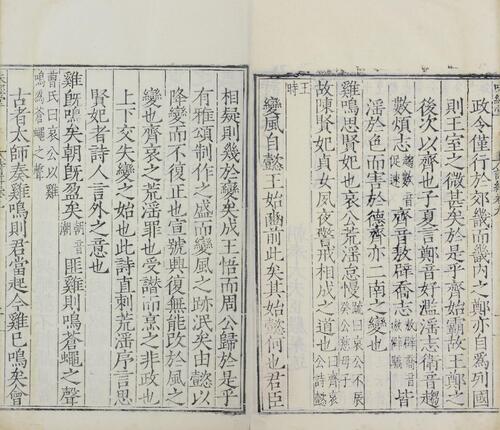 政令僅行於郊畿而畿内之鄭亦自爲列國
則王室之微甚矣於是乎齊始霸故王鄭之
後次以齊也子夏言鄭音好濫淫志衛音趨
數煩志趨數音促速齊音敖辟喬志敖辟喬音傲僻驕皆
淫於色而害於德齊亦二南之變也
雞鳴思賢妃也哀公荒淫怠慢疏曰哀公不辰癸公慈母子
故陳賢妃貞女夙夜警戒相成之道也曰齊哀公詩
王時
變風自懿王始幽前此矣其始懿何也君臣
相疑則幾於變矣成王悟而周公歸於是乎
有雅頌制作之盛而變風之跡泯矣由懿以
降變而不復正也宣號興復無能改於風之
變也齊哀之荒淫罪也受譖而烹之非政也
上下交失變之始也此詩直刺荒淫序言思
賢妃者詩人言外之意也
雞既鳴矣朝既盈矣朝音潮匪雞則鳴蒼蠅之聲
曹氏曰哀公以雞鳴爲蒼蠅之聲
古者太師奏雞鳴則君當起今雞已鳴矣會